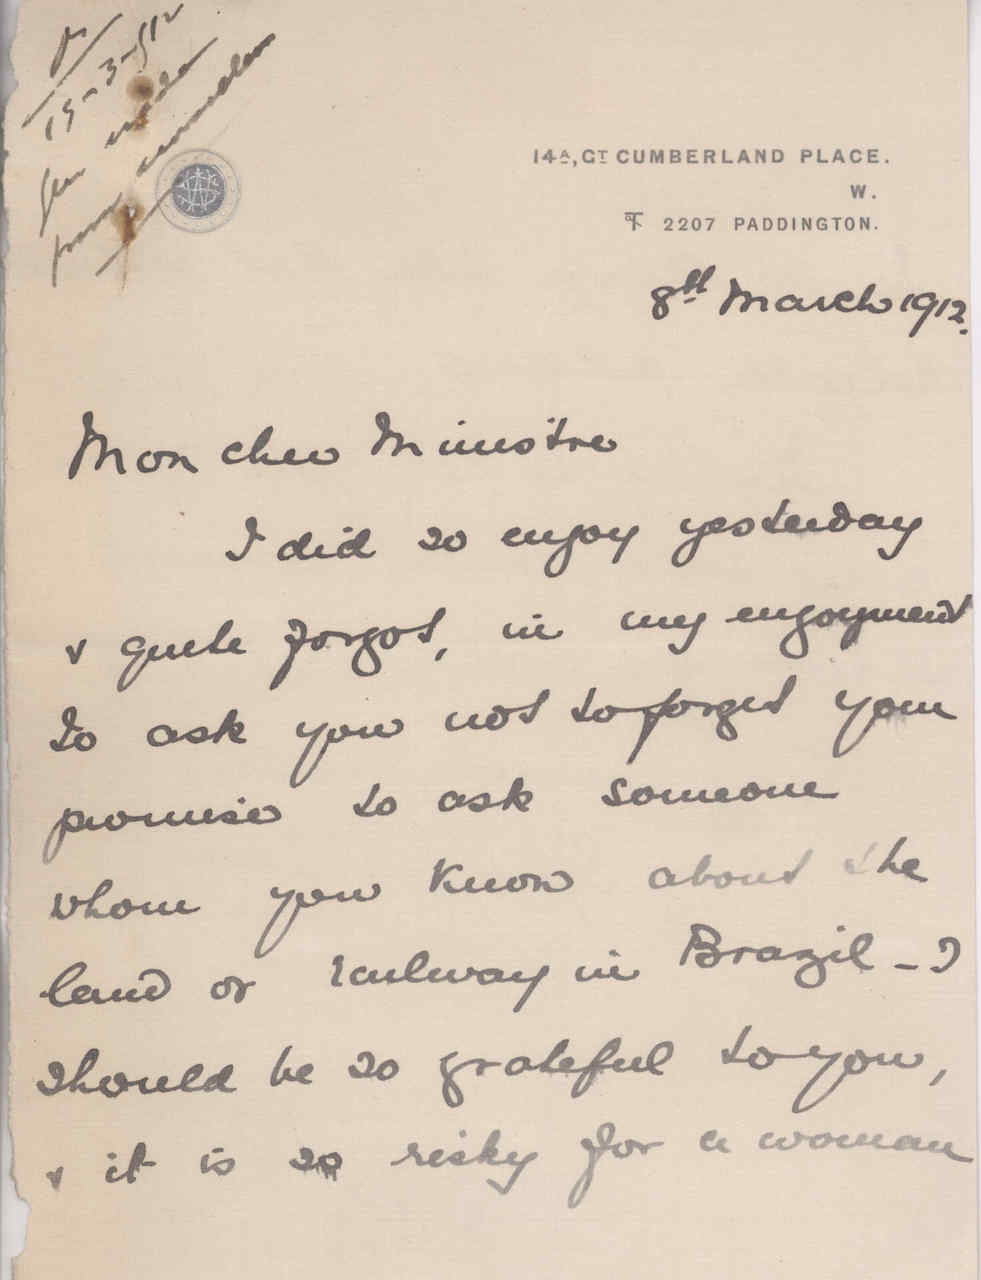 15-3-912
14A, GT CUMBERLAND PLACE.
W.
T 2207 PADDINGTON.
8th March 1912.
Mon cher Ministre
I did so enjoy yesterday
& quite forgot, in my enjoyment
to ask you not to forget your
promise to ask someone
whom you know about the
land or railway in Brazil - I
should be so grateful to you,
& it is so risky for a woman